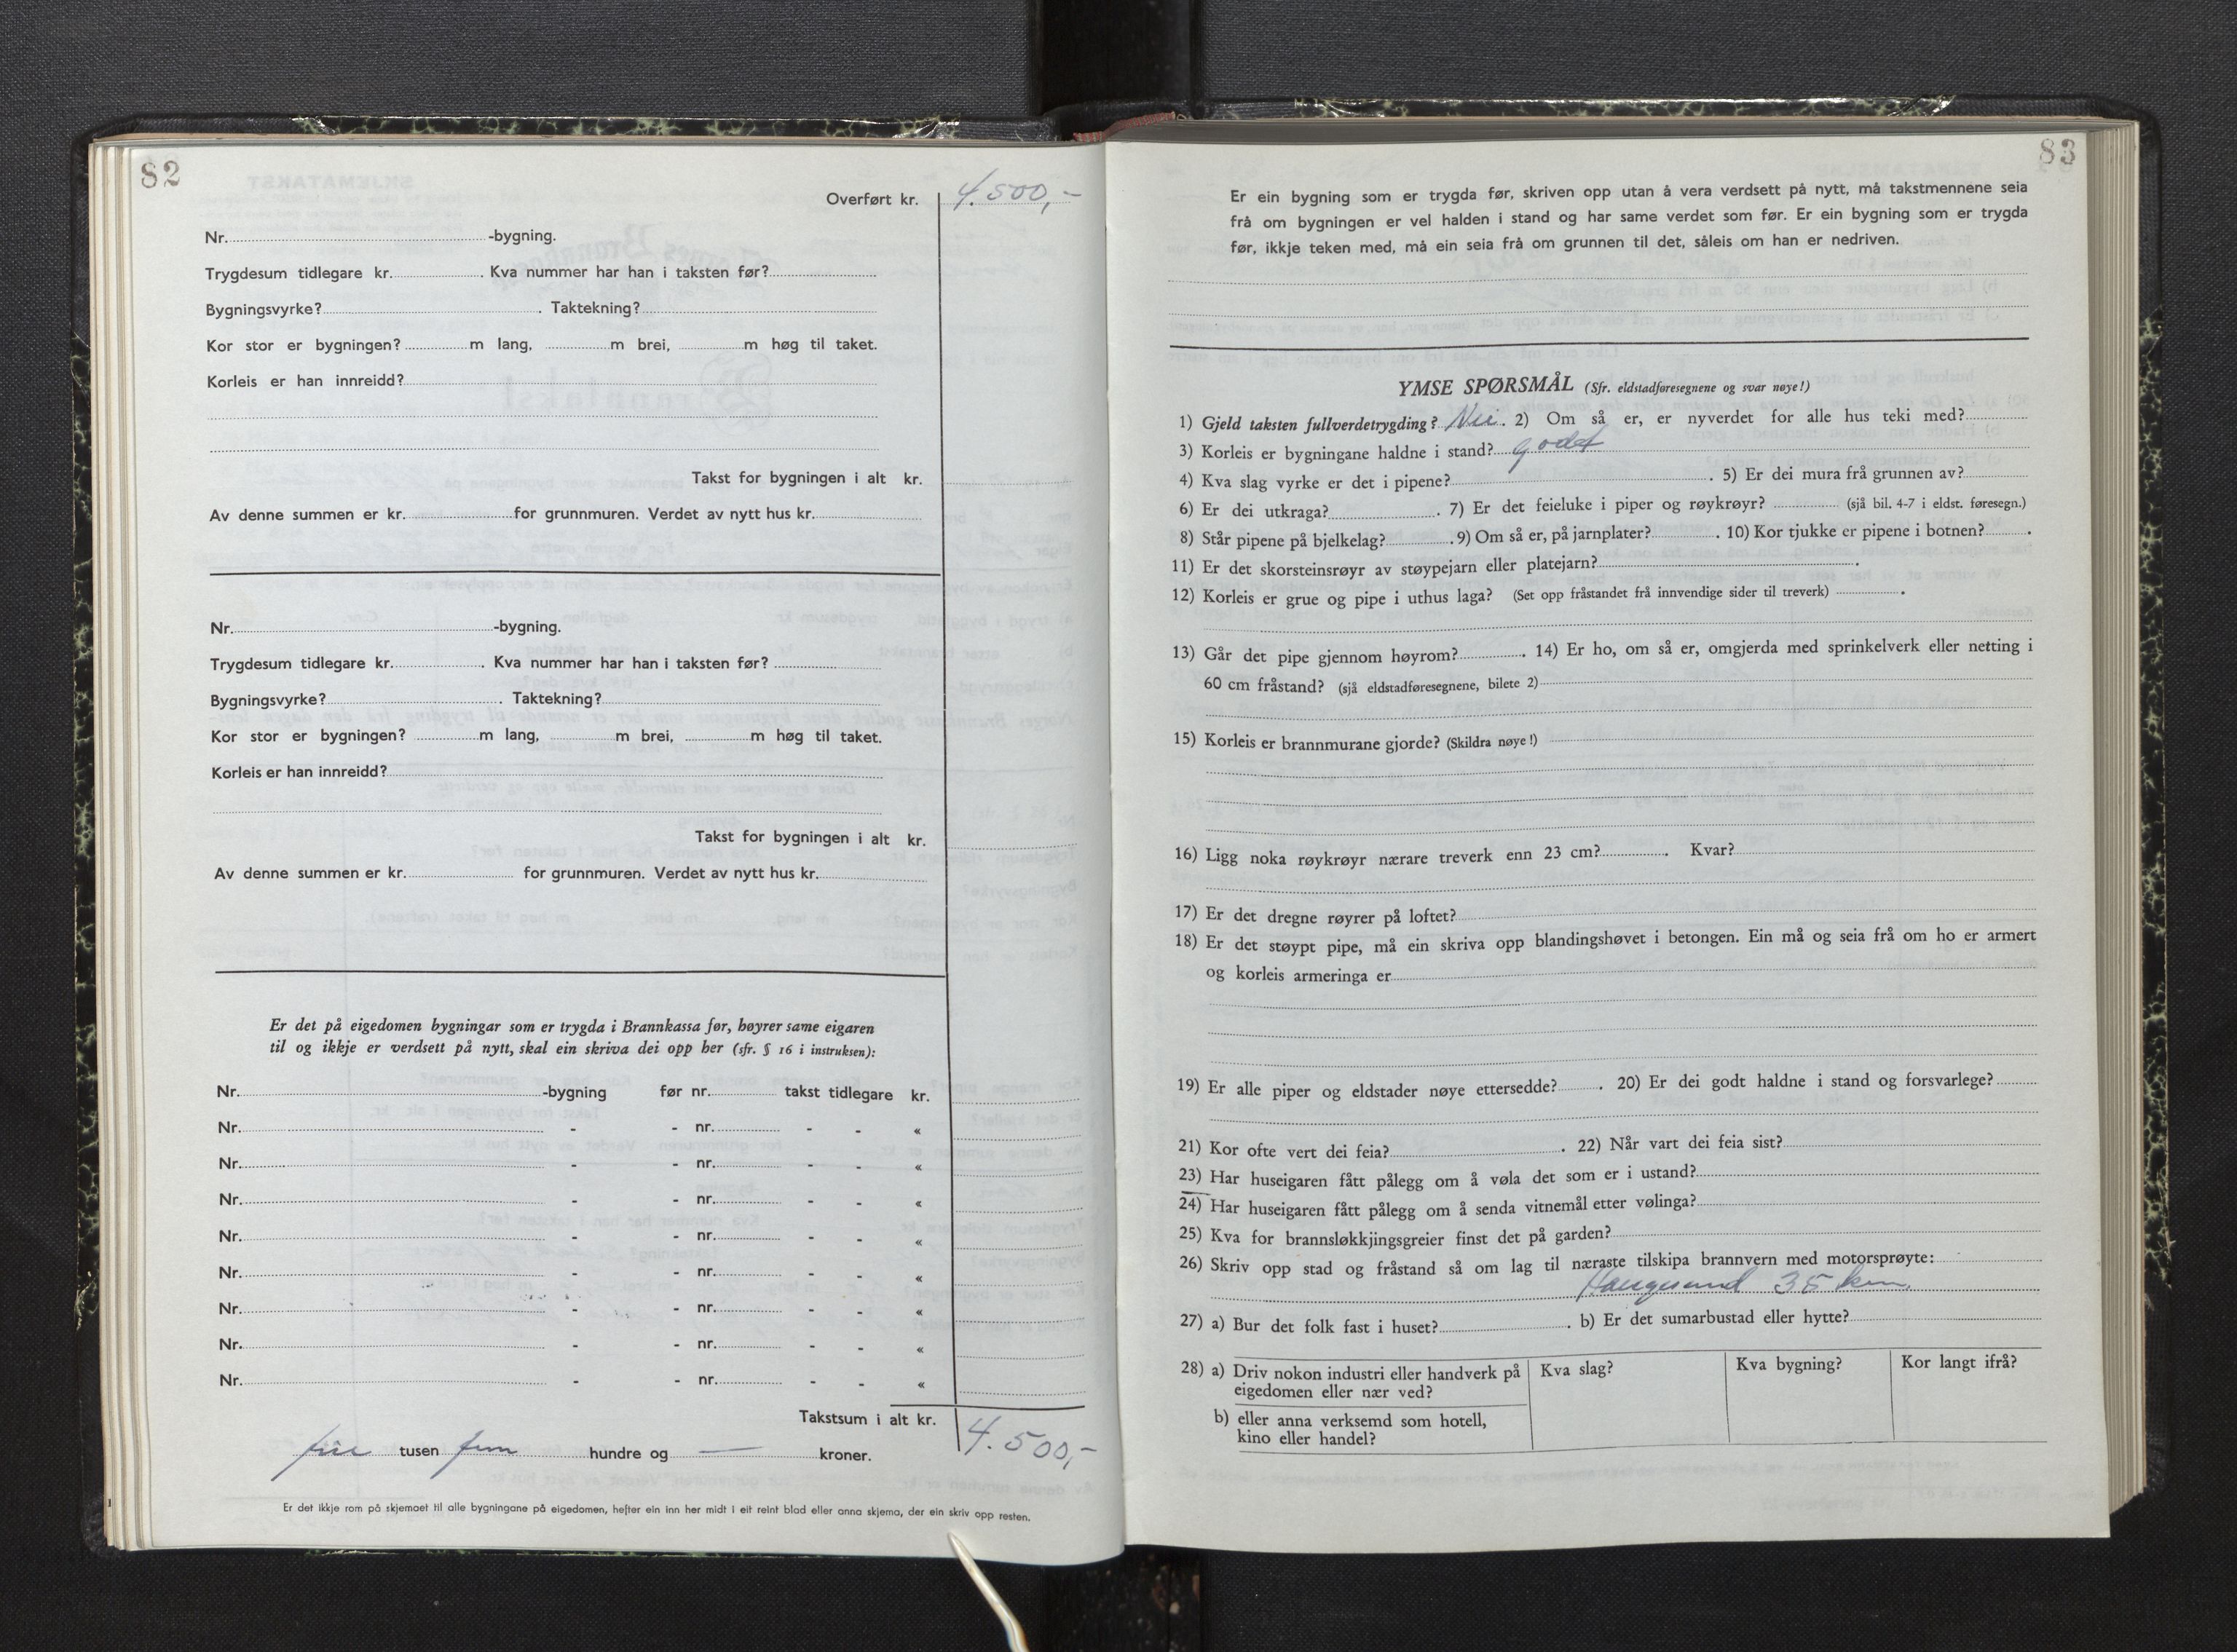 82
Overført kr. 4.500,-
Nr. -bygning.
Trygdesum tidlegare kr. . Kva nummer har han i taksten før?
Bygningsvyrke? . Taktekning?
Kor stor er bygningen? m lang, m brei, m høg til taket.
Korleis er han innreidd?
Takst for bygningen i alt kr.
Av denne summen er kr. for grunnmuren. Verdet av nytt hus kr.
Nr. -bygning.
Trygdesum tidlegare kr. . Kva nummer har han i taksten før?
Bygningsvyrke? . Taktekning?
Kor stor er bygningen? m lang, m brei, m høg til taket.
Korleis er han innreidd?
Takst for bygningen i alt kr.
Av denne summen er kr. for grunnmuren. Verdet av nytt hus kr.
Er det på eigedomen bygningar som er trygda i Brannkassa før, høyrer same eigaren
til og ikkje er verdsett på nytt, skal ein skriva dei opp her (sfr. § 16 i instruksen):
Nr. -bygning før nr. takst tidlegare kr.
Nr. - - nr. - - «
Nr. - - nr. - - «
Nr. - - nr. - - «
Nr. - - nr. - - «
Nr. - - nr. - - «
Nr. - - nr. - - «
Nr. - - nr. - - «
Nr. - - nr. - - «
Takstsum i alt kr. 4.500,-
fire tusen fem hundre og — kroner.
Er det ikkje rom på skjemaet til alle bygningane på eigedomen, hefter ein inn her midt i eit reint blad eller anna skjema, der ein skriv opp resten.
83
Er ein bygning som er trygda før, skriven opp utan å vera verdsett på nytt, må takstmennene seia
frå om bygningen er vel halden i stand og har same verdet som før. Er ein bygning som er trygda
før, ikkje teken med, må ein seia frå om grunnen til det, såleis om han er nedriven.
YMSE SPØRSMÅL (Sfr. eldstadføresegnene og svar nøye!)
1) Gjeld taksten fullverdetrygding? Nei. 2) Om så er, er nyverdet for alle hus teki med?
3) Korleis er bygningane haldne i stand? godt
4) Kva slag vyrke er det i pipene? . 5) Er dei mura frå grunnen av?
6) Er dei utkraga? . 7) Er det feieluke i piper og røykrøyr? (sjå bil. 4-7 i eldst. føresegn.)
8) Står pipene på bjelkelag? . 9) Om så er, på jarnplater? . 10) Kor tjukke er pipene i botnen? .
11) Er det skorsteinsrøyr av støypejarn eller platejarn? .
12) Korleis er grue og pipe i uthus laga? (Set opp fråstandet frå innvendige sider til treverk) .
13) Går det pipe gjennom høyrom? . 14) Er ho, om så er, omgjerda med sprinkelverk eller netting i
60 cm fråstand? (sjå eldstadføresegnene, bilete 2)
15) Korleis er brannmurane gjorde? (Skildra nøye!)
16) Ligg noka røykrøyr nærare treverk enn 23 cm? . Kvar?
17) Er det dregne røyrer på loftet?
18) Er det støypt pipe, må ein skriva opp blandingshøvet i betongen. Ein må og seia frå om ho er armert
og korleis armeringa er
19) Er alle piper og eldstader nøye ettersedde? . 20) Er dei godt haldne i stand og forsvarlege?
21) Kor ofte vert dei feia? . 22) Når vart dei feia sist?
23) Har huseigaren fått pålegg om å vøla det som er i ustand?
24) Har huseigaren fått pålegg om å senda vitnemål etter vølinga?
25) Kva for brannsløkkjingsgreier finst det på garden?
26) Skriv opp stad og fråstand så om lag til næraste tilskipa brannvern med motorsprøyte:
Haugesund 35 km.
27) a) Bur det folk fast i huset? . b) Er det sumarbustad eller hytte?
28) a) Driv nokon industri eller handverk på
eigedomen eller nær ved?
Kva slag? Kva bygning? Kor langt ifrå?
b) eller anna verksemd som hotell,
kino eller handel?